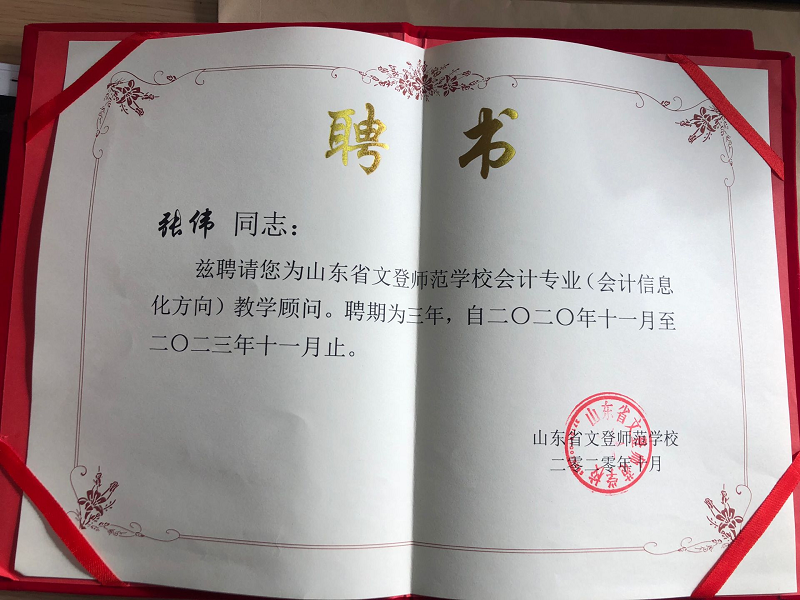 聘 书
张伟 同志：
兹聘请您为山东省文登师范学校会计专业（会计信息
化方向）教学顾问。聘期为三年，自二〇二〇年十一月至
二〇二三年十一月止。
山东省文登师范学校
二零二零年十月
山东省文登师范学校